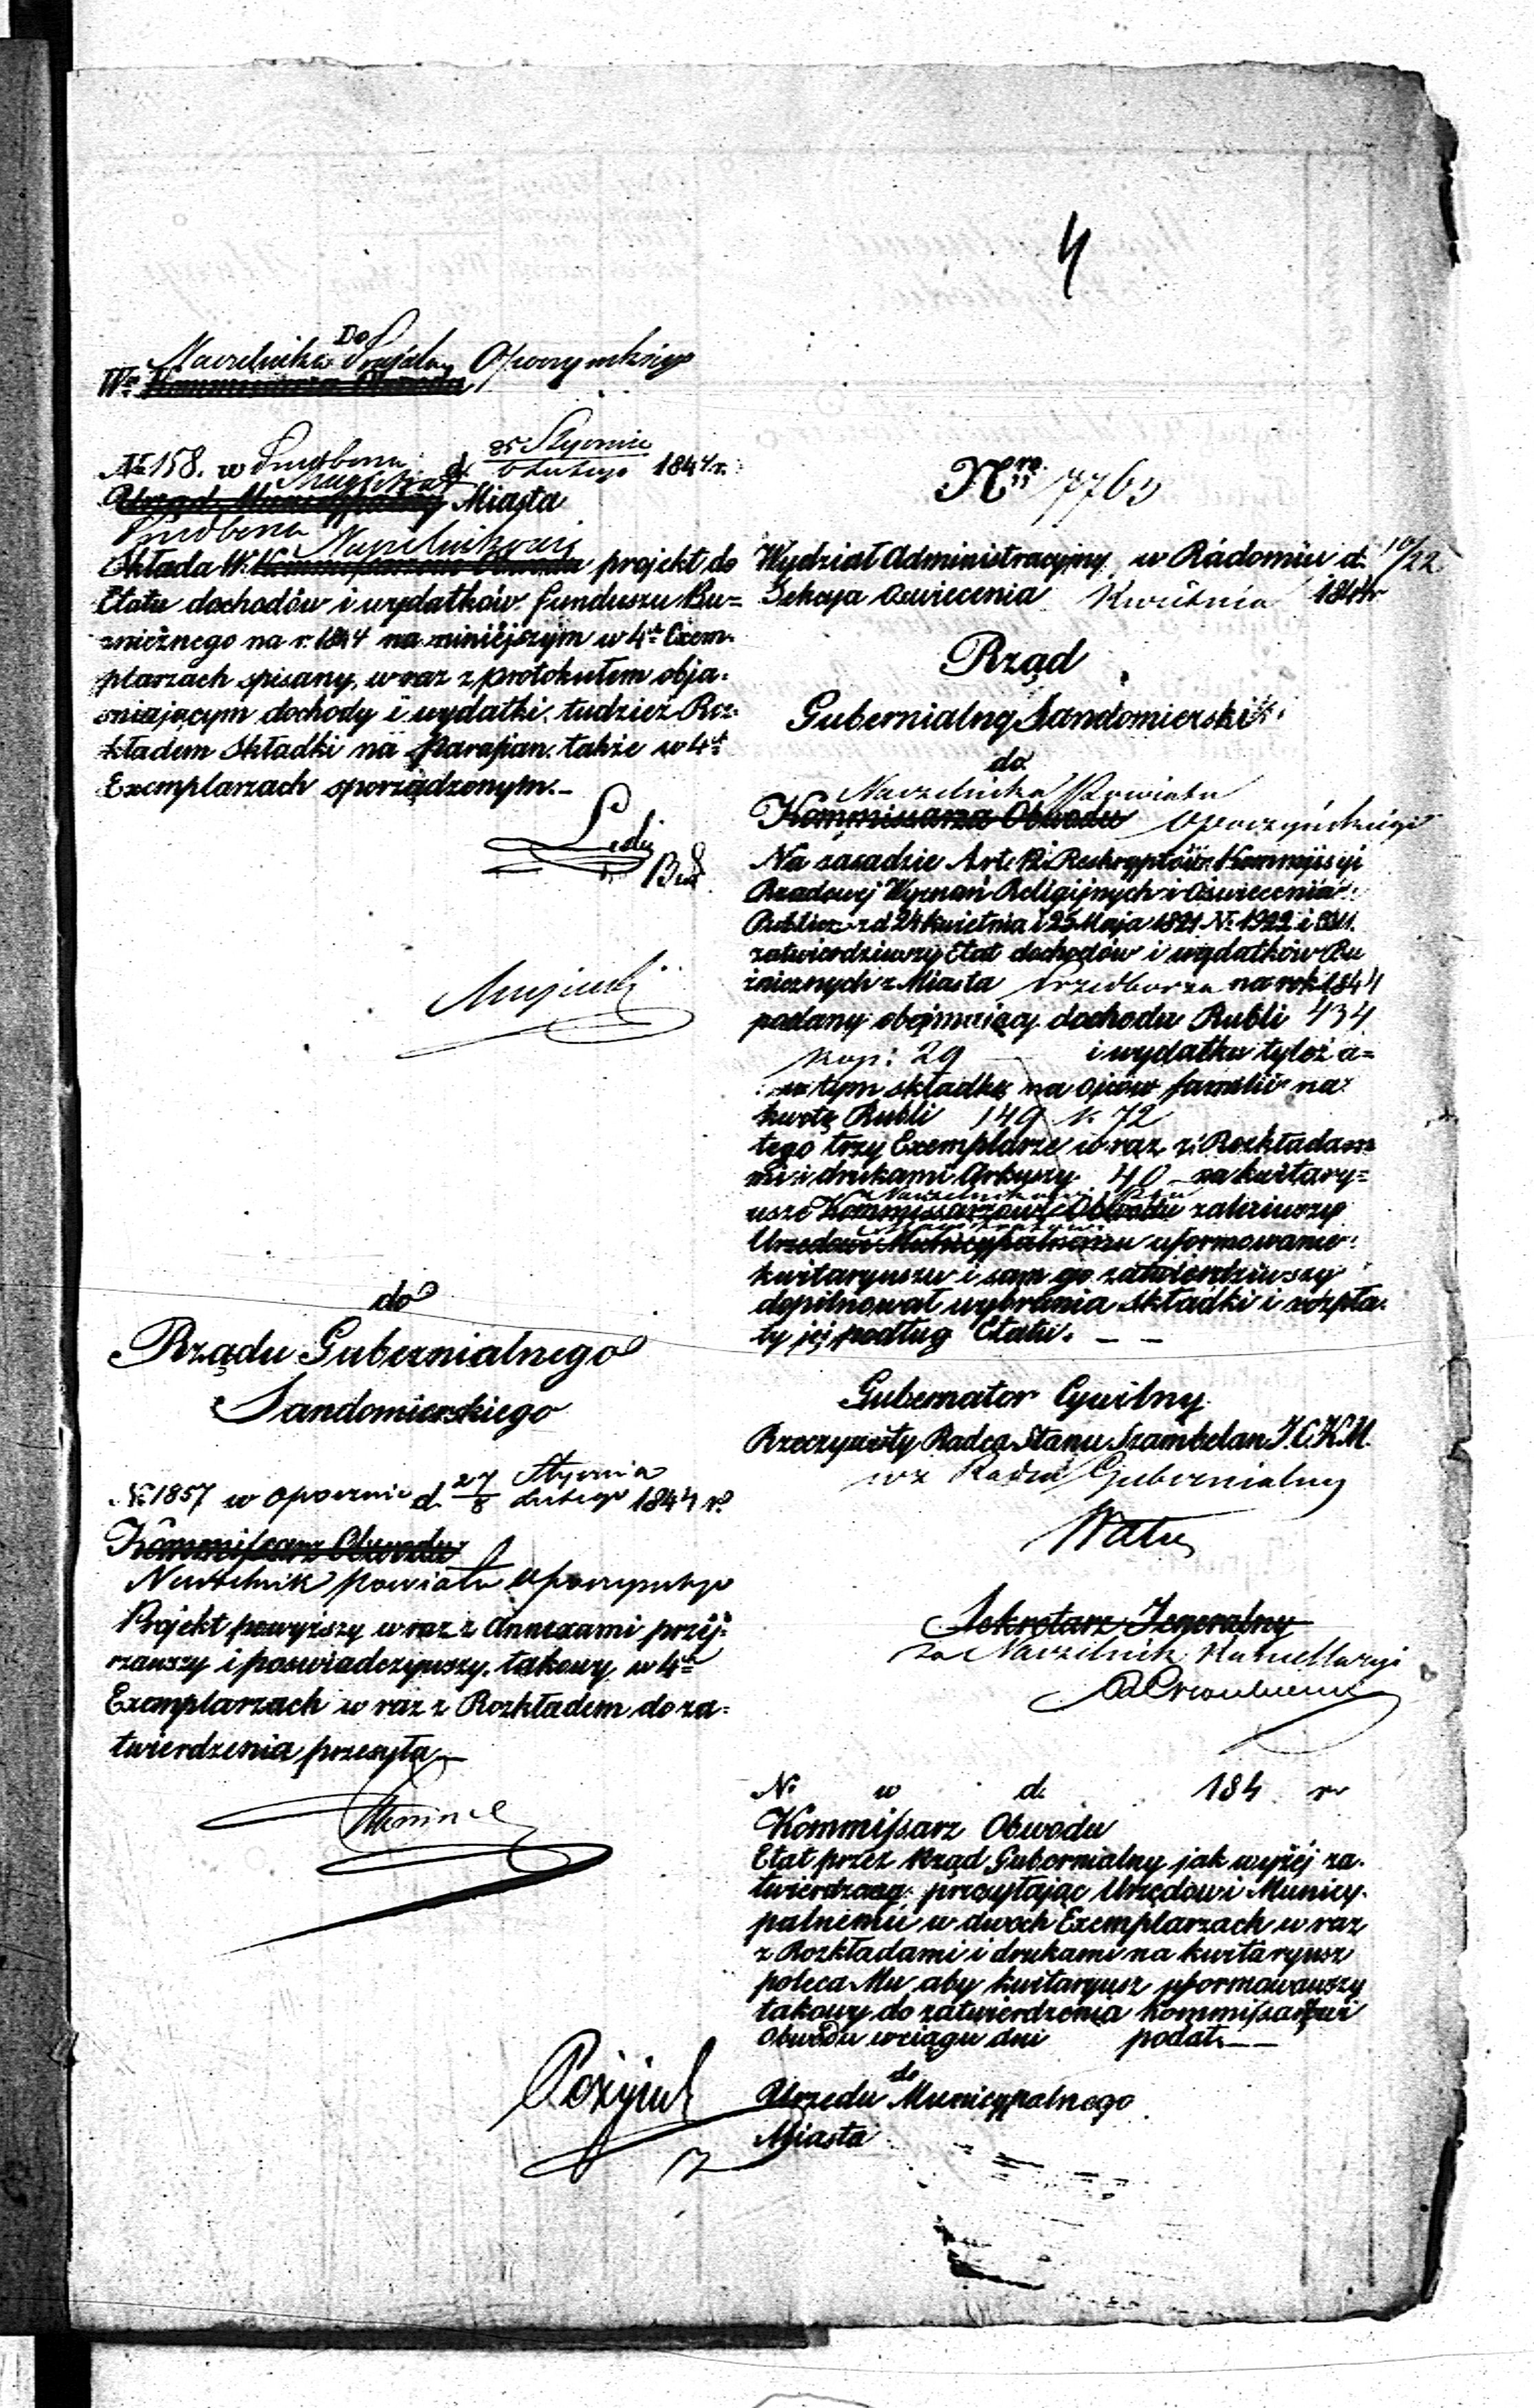 4
Do
Naczelnika Powiatu Opoczynskiego
Wo Kommissarza Obwodu
No 158. w Przedborzu d. 25 Stycznia
6 Lutego 1844 r.
Magistrat
Urząd Municypalny Miasta
Przedborza Naczelnikowi
Składa W. Kommissarzowi Obwodu projekt do
Etatu dochodów i wydatków funduszu Bu=
żnicznego na r. 1844 na niniejszym w 4ch Exem-
plarzach spisany, w raz z protokułem obja-
śniającym dochody i wydatki, tudzież Roz-
kładem Składki na Parafian. także w 4ch
Exemplarzach sporządzonym.—
do
Rządu Gubernialnego
Sandomierskiego
No 1857 w Opocznie d. 27 Stycznia
8 Lutego 1844 r.
Kommissarz Obwodu
Naczelnik Powiatu Opoczynskiego
Projekt powyższy w raz z Annexami przej-
rzawszy i poswiadczywszy, takowy w 4ch
Exemplarzach w raz z Rozkładem do za-
twierdzenia przesyła—
Nro 7763
Wydział Administracyjny w Radomiu d. 10/22
Sekcya Oswiecenia Kwietnia 1844 r
Rząd
Gubernialny Sandomierski
do
Naczelnika Powiatu
Kommissarza Obwodu Opoczyńskiego
Na zasadzie Art. i Reskryptów Kommissyi
Rządowej Wyznań Religijnych i Oświecenia
Publicz. z d 24 kwietnia i 25 Maja 1821 No 1922 i
zatwierdziwszy Etat dochodów i wydatków Bu
żnicznych z Miasta Przedborza na rok 1844
podany obejmujący dochodu Rubli 434
kop: 29 i wydatku tyleż a=
w tym składkę na ojców familii na
kwotę Rubli 149 k. 72
tego trzy Exemplarze w raz z Rozkłada=
mi i drukami Arkuszy 40 na kwitary=
usze Kommissarzowi Obwodu zaleciwszy
Urzędowi Municypalnemu uformowanie
kwitaryuszu i sam go zatwierdziwszy
dopilnował wybrania Składki i rozpła-
ty jej podług Etatu. — —
Gubernator Cywilny
Rzeczywisty Radca Stanu Szambelan J.C.K.M.
wz Radca Gubernialny
Sekretarz Jeneralny
za Naczelnik Kancellaryi
No w d. 184 r
Kommissarz Obwodu
Etat przez Rząd Gubernialny jak wyżej za-
twierdzony przesyłając Urzędowi Municy-
palnemu w dwoch Exemplarzach w raz
z Rozkładami i drukami na kwitaryusz
poleca Mu aby kwitaryusz uformowawszy
takowy do zatwierdzenia Kommissarzowi
Obwodu w ciągu dni podał.——
do
Urzedu Municypalnego
Miasta